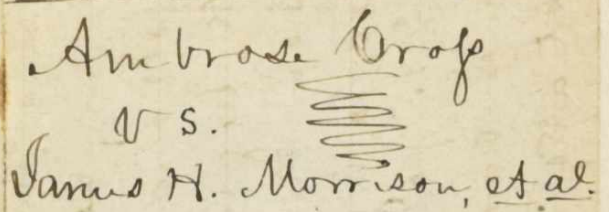 Ambrose Cross
vs.
James H. Morrison, et al.